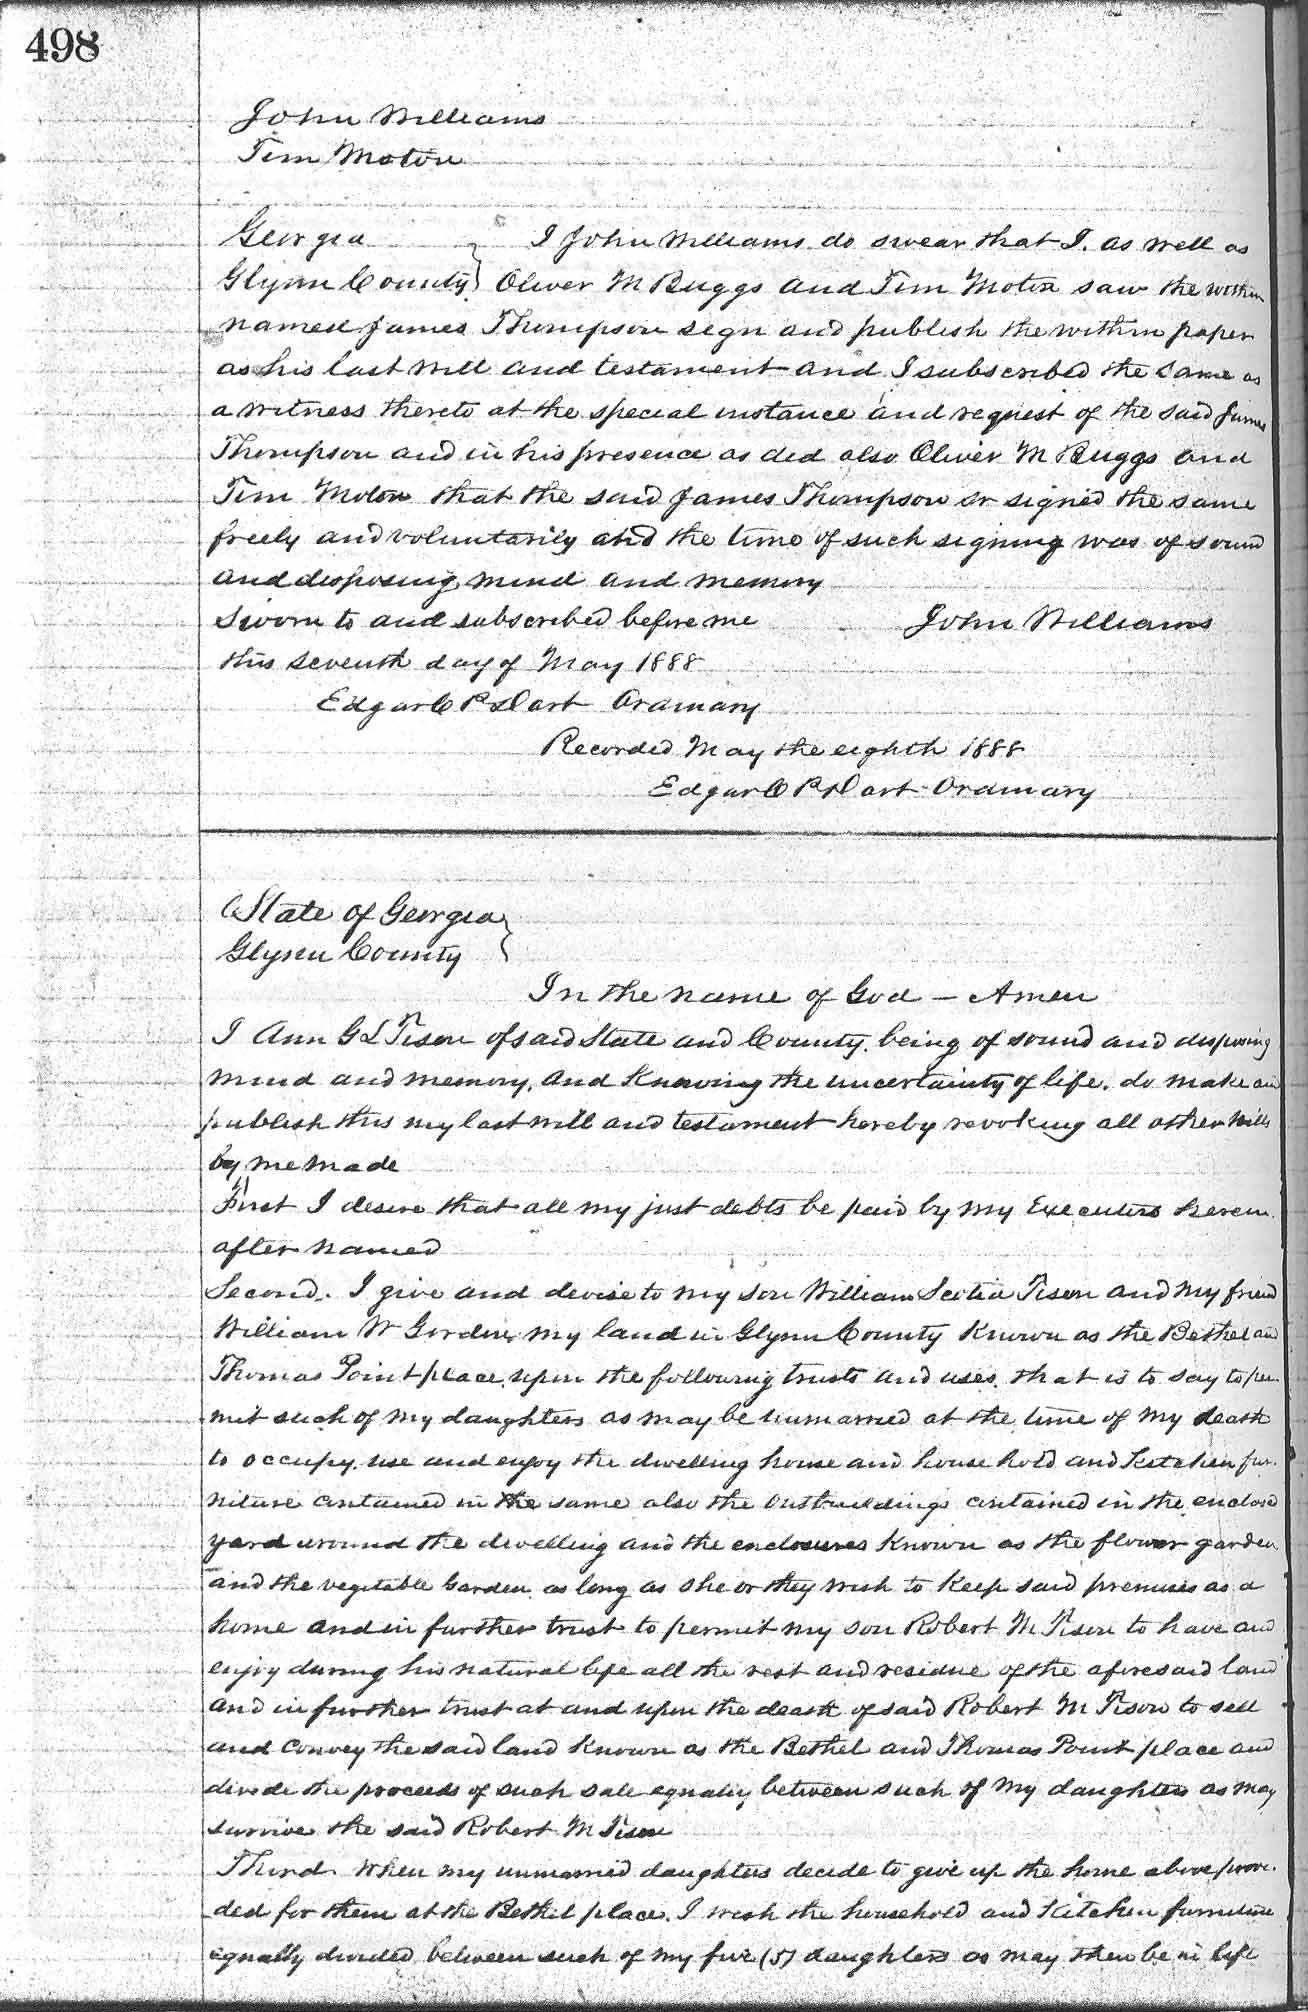 498
John Williams
Tim Moton
Georgia } I John Williams do swear that I. as well as
Glynn County } Oliver M Buggs and Tim Moton saw the within
named James Thompson sign and publish the within paper
as his last will and testament and I subscribed the same as
a witness thereto at the special instance and request of the said James
Thompson and in his presence as did also Oliver M Buggs and
Tim Moton that the said James Thompson sr signed the same
freely and voluntarily and the time of such signing was of sound
and disposing mind and memory
Sworn to and subscribed before me John Williams
this seventh day of May 1888
Edgar C P Dart Ordinary
Recorded May the eighth 1888
Edgar C P Dart Ordinary
State of Georgia }
Glynn County }
In the name of God – Amen
I Ann G L Tison of said State and County. being of sound and disposing
mind and memory. and Knowing the uncertainty of life. do make and
publish this my last will and testament hereby revoking all other wills
by me made
First I desire that all my just debts be paid by my Executors herein
after named
Second. I give and devise to my son William Scotia Tison and my friend
William W Gordon my land in Glynn County Known as the Bethel and
Thomas Point place. upon the following trusts and uses. that is to say to per-
mit such of my daughters as may be unmarried at the time of my death
to occupy. use and enjoy the dwelling house and house hold and Kitchen fur-
niture contained in the same also the outbuildings contained in the enclosed
yard around the dwelling and the enclosures Known as the flower garden
and the vegetable Garden as long as she or they wish to Keep said premises as a
home and in further trust to permit my son Robert M Tison to have and
enjoy during his natural life all the rest and residue of the aforesaid land
and in further trust at and upon the death of said Robert M Tison to sell
and convey the said land Known as the Bethel and Thomas Point place and
divide the proceeds of such sale equally between such of my daughters as may
survive the said Robert M Tison
Third. When my unmarried daughters decide to give up the home above provi-
ded for them at the Bethel place. I wish the household and Kitchen furniture
equally divided between such of my five (5) daughters as may then be in life